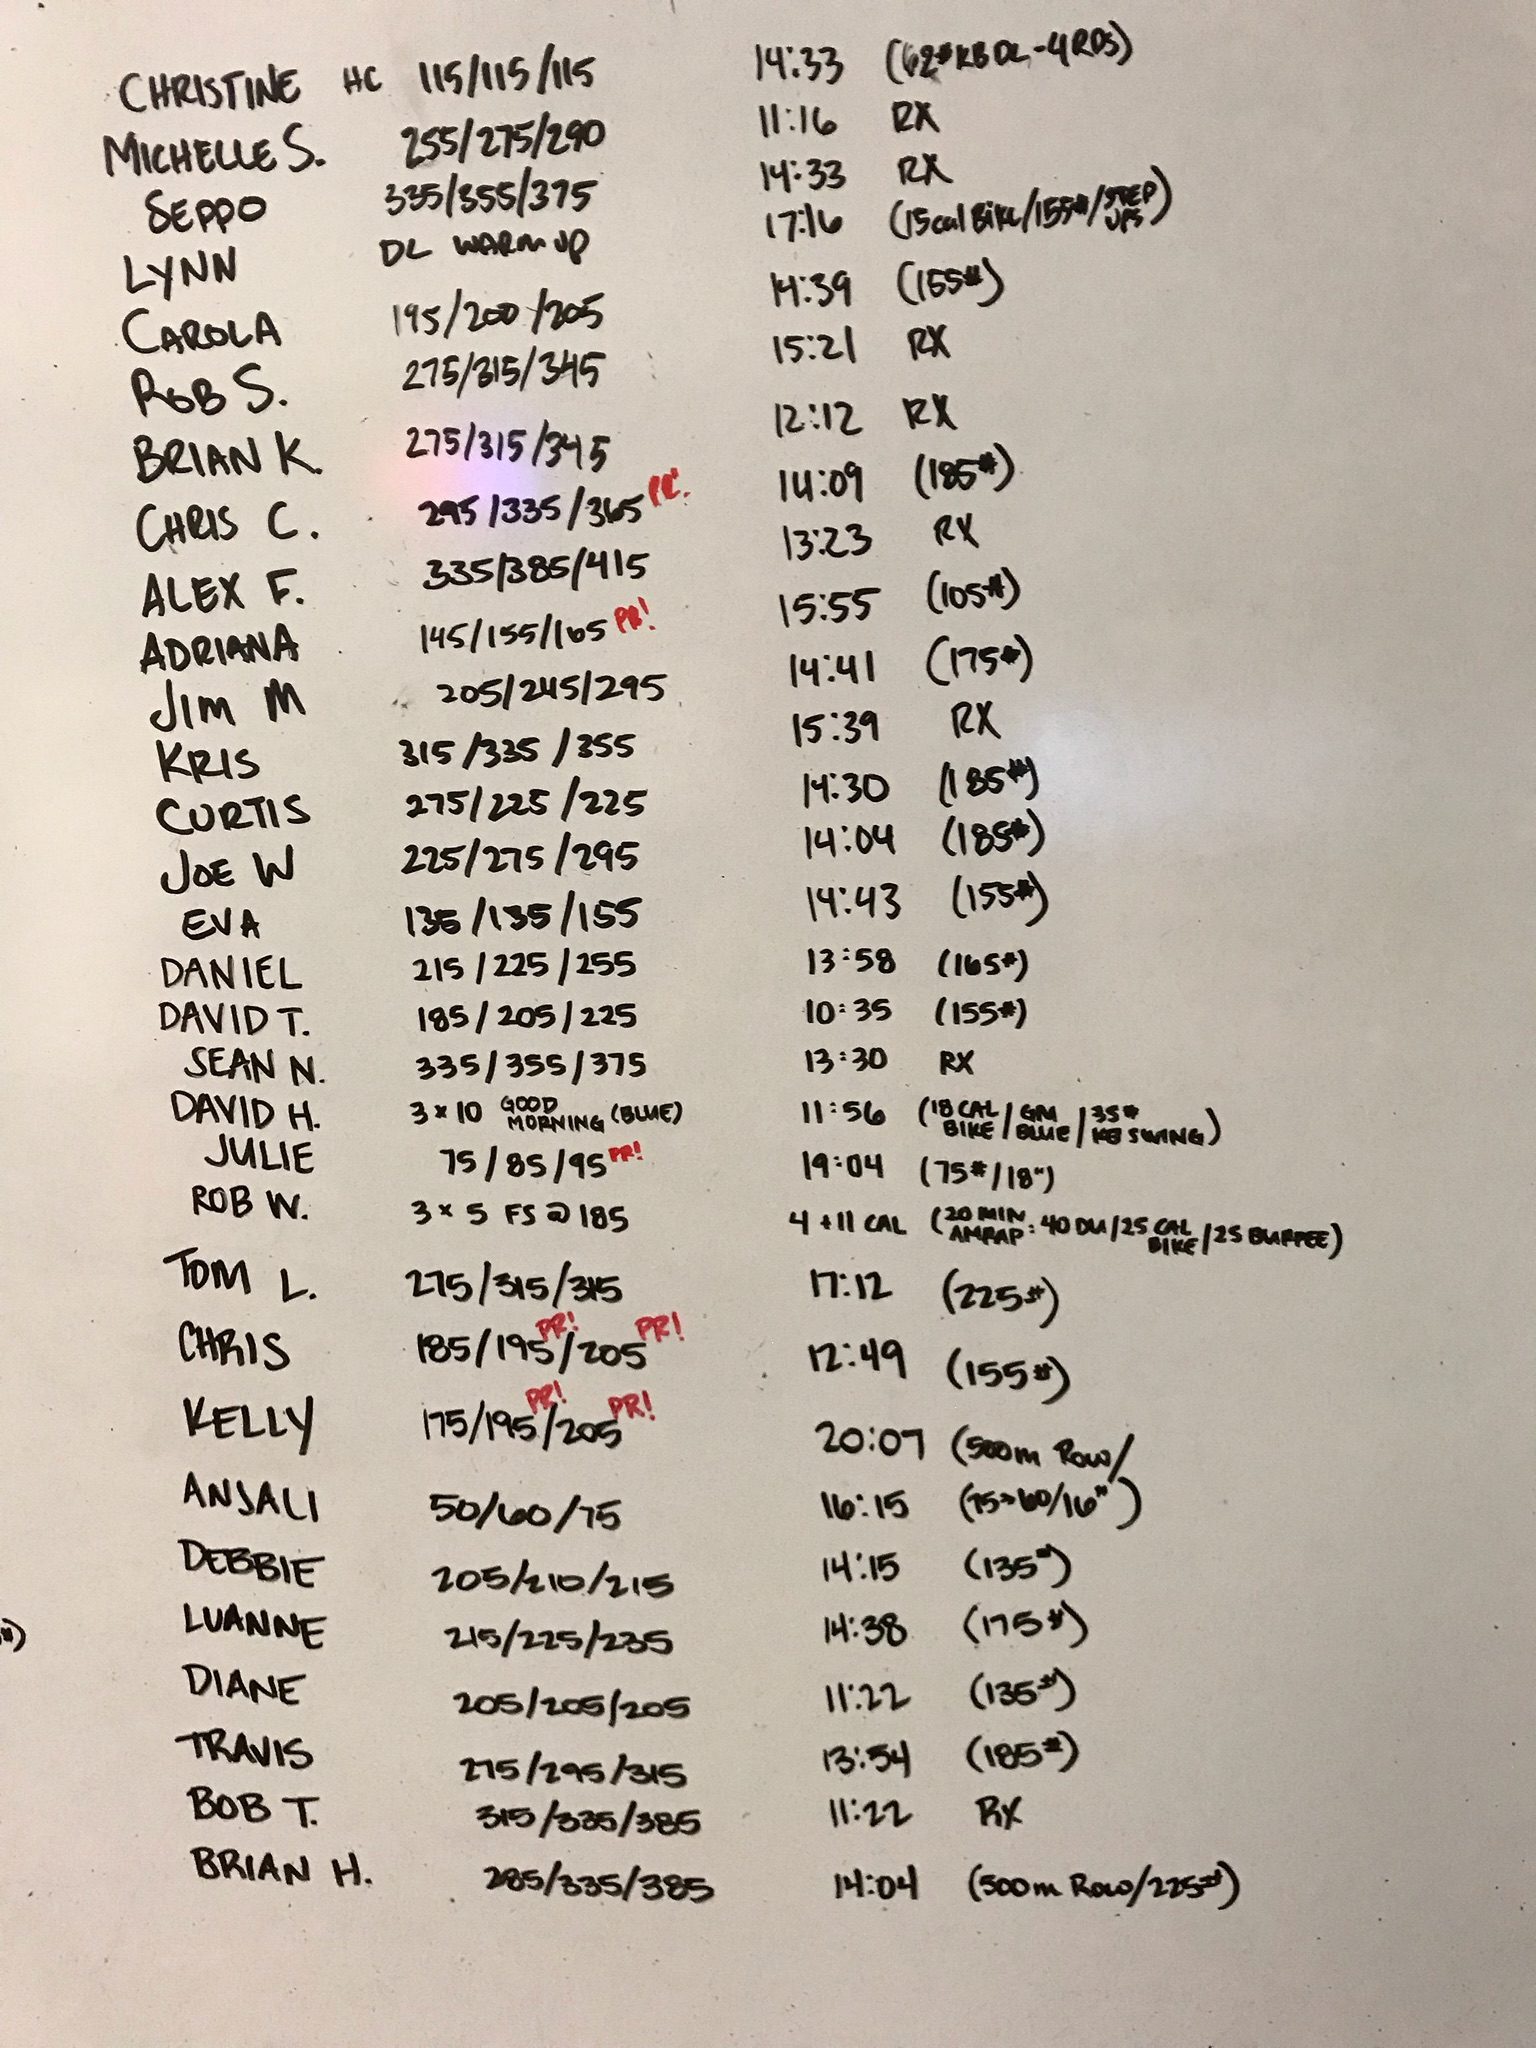 CHRISTINE HC 115/115/115 14:33 (62# KB DL - 4 RDS)
MICHELLE S. 255/275/290 11:16 RX
SEPPO 335/355/375 14:33 RX
LYNN DL WARM UP 17:16 (15 cal Bike/155#/STEP UPS)
CAROLA 195/200/205 14:39 (155#)
ROB S. 275/315/345 15:21 RX
BRIAN K. 275/315/345 12:12 RX
CHRIS C. 295/335/365 PR! 14:09 (185#)
ALEX F. 335/385/415 13:23 RX
ADRIANA 145/155/165 PR! 15:55 (105#)
JIM M 205/245/295 14:41 (175#)
KRIS 315/335/355 15:39 RX
CURTIS 275/225/225 14:30 (185#)
JOE W 225/275/295 14:04 (185#)
EVA 135/135/155 14:43 (155#)
DANIEL 215/225/255 13:58 (165#)
DAVID T. 185/205/225 10:35 (155#)
SEAN N. 335/355/375 13:30 RX
DAVID H. 3 x 10 GOOD MORNING (BLUE) 11:56 (18 CAL BIKE/GM BLUE/35# KB SWING)
JULIE 75/85/95 PR! 19:04 (75#/18")
ROB W. 3 x 5 FS @ 185 4 + 11 CAL (20 MIN AMRAP: 40 DU/25 CAL BIKE/25 BURPEE)
TOM L. 275/315/315 17:12 (225#)
CHRIS 185/195 PR!/205 PR! 12:49 (155#)
KELLY 175/195 PR!/205 PR! 20:07 (500m Row/
ANJALI 50/60/75 16:15 (75>60/16")
DEBBIE 205/210/215 14:15 (135#)
LUANNE 215/225/235 14:38 (175#)
#)
DIANE 205/205/205 11:22 (135#)
TRAVIS 275/295/315 13:54 (185#)
BOB T. 315/335/385 11:22 RX
BRIAN H. 285/335/385 14:04 (500m Row/225#)